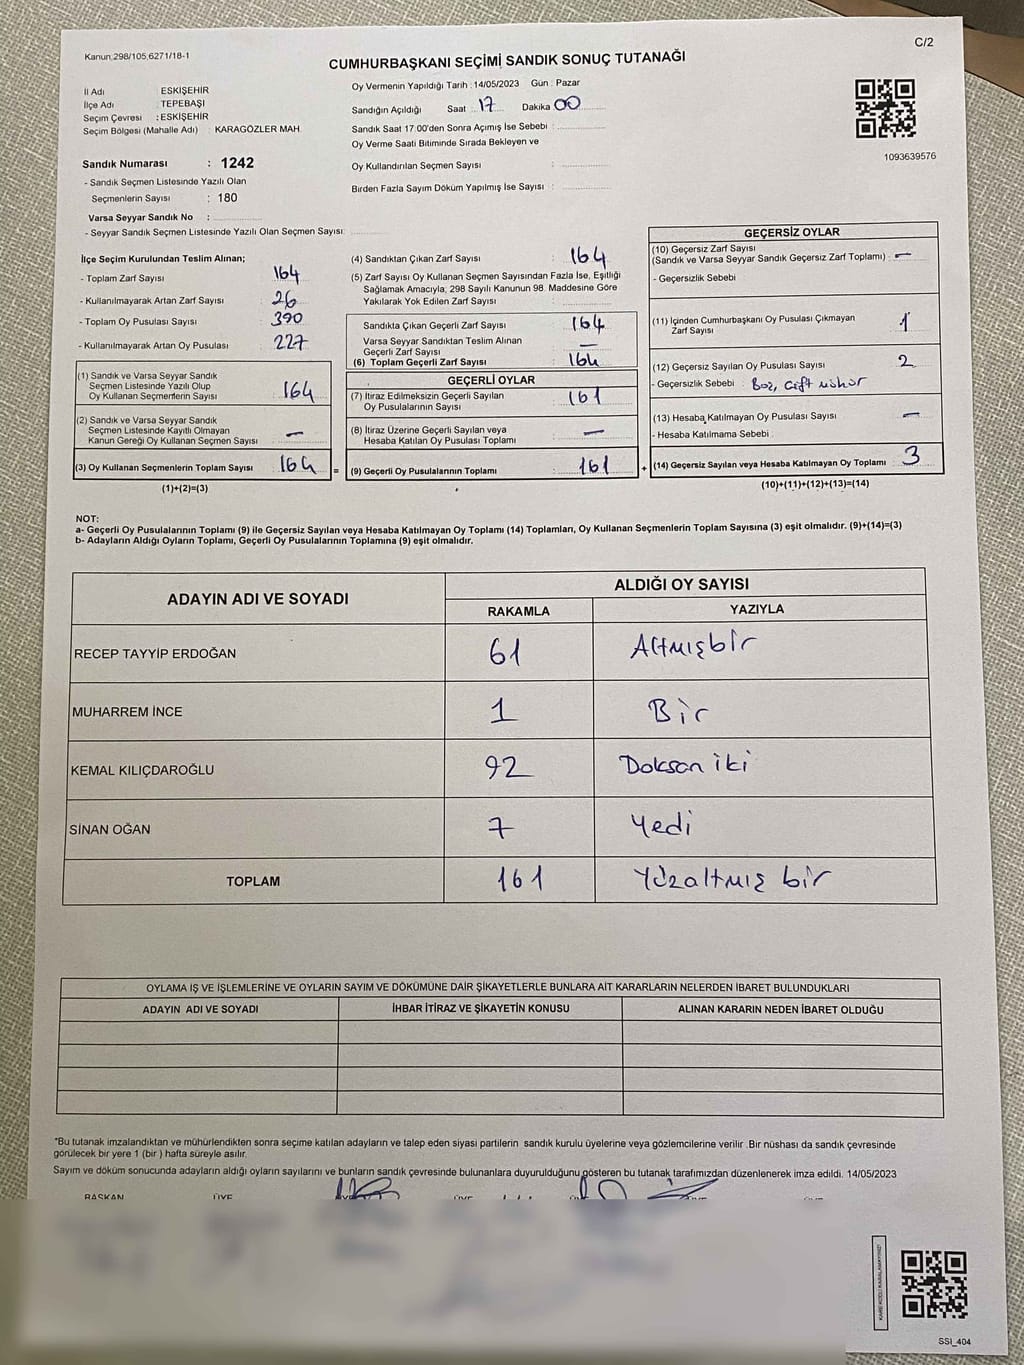 C/2
Kanun;298/105;6271/18-1
CUMHURBAŞKANI SEÇİMİ SANDIK SONUÇ TUTANAĞI
İl Adı : ESKİŞEHİR
İlçe Adı : TEPEBAŞI
Seçim Çevresi : ESKİŞEHİR
Seçim Bölgesi (Mahalle Adı) : KARAGÖZLER MAH.
Sandık Numarası : 1242
- Sandık Seçmen Listesinde Yazılı Olan
Seçmenlerin Sayısı : 180
Varsa Seyyar Sandık No :
- Seyyar Sandık Seçmen Listesinde Yazılı Olan Seçmen Sayısı:
Oy Vermenin Yapıldığı Tarih : 14/05/2023 Gün : Pazar
Sandığın Açıldığı Saat : 17 Dakika 00
Sandık Saat 17:00'den Sonra Açımış İse Sebebi :
Oy Verme Saati Bitiminde Sırada Bekleyen ve
Oy Kullandırılan Seçmen Sayısı :
Birden Fazla Sayım Döküm Yapılmış İse Sayısı :
1093639576
İlçe Seçim Kurulundan Teslim Alınan;
- Toplam Zarf Sayısı : 164
- Kullanılmayarak Artan Zarf Sayısı : 26
- Toplam Oy Pusulası Sayısı : 390
- Kullanılmayarak Artan Oy Pusulası : 227
(1) Sandık ve Varsa Seyyar Sandık
Seçmen Listesinde Yazılı Olup
Oy Kullanan Seçmenlerin Sayısı : 164
(2) Sandık ve Varsa Seyyar Sandık
Seçmen Listesinde Kayıtlı Olmayan
Kanun Gereği Oy Kullanan Seçmen Sayısı : —
(3) Oy Kullanan Seçmenlerin Toplam Sayısı : 164 =
(1)+(2)=(3)
(4) Sandıktan Çıkan Zarf Sayısı : 164
(5) Zarf Sayısı Oy Kullanan Seçmen Sayısından Fazla İse, Eşitliği
Sağlamak Amacıyla; 298 Sayılı Kanunun 98. Maddesine Göre
Yakılarak Yok Edilen Zarf Sayısı :
Sandıkta Çıkan Geçerli Zarf Sayısı : 164
Varsa Seyyar Sandıktan Teslim Alınan
Geçerli Zarf Sayısı : —
(6) Toplam Geçerli Zarf Sayısı : 164
GEÇERLİ OYLAR
(7) İtiraz Edilmeksizin Geçerli Sayılan
Oy Pusulalarının Sayısı : 161
(8) İtiraz Üzerine Geçerli Sayılan veya
Hesaba Katılan Oy Pusulası Toplamı : —
(9) Geçerli Oy Pusulalarının Toplamı : 161 +
GEÇERSİZ OYLAR
(10) Geçersiz Zarf Sayısı
(Sandık ve Varsa Seyyar Sandık Geçersiz Zarf Toplamı) : —
- Geçersizlik Sebebi :
(11) İçinden Cumhurbaşkanı Oy Pusulası Çıkmayan
Zarf Sayısı : 1
(12) Geçersiz Sayılan Oy Pusulası Sayısı : 2
- Geçersizlik Sebebi : Boş, Çift mühür
(13) Hesaba Katılmayan Oy Pusulası Sayısı : —
- Hesaba Katılmama Sebebi :
(14) Geçersiz Sayılan veya Hesaba Katılmayan Oy Toplamı : 3
(10)+(11)+(12)+(13)=(14)
NOT:
a- Geçerli Oy Pusulalarının Toplamı (9) ile Geçersiz Sayılan veya Hesaba Katılmayan Oy Toplamı (14) Toplamları, Oy Kullanan Seçmenlerin Toplam Sayısına (3) eşit olmalıdır. (9)+(14)=(3)
b- Adayların Aldığı Oyların Toplamı, Geçerli Oy Pusulalarının Toplamına (9) eşit olmalıdır.
ADAYIN ADI VE SOYADI ALDIĞI OY SAYISI
RAKAMLA YAZIYLA
RECEP TAYYİP ERDOĞAN 61 Altmışbir
MUHARREM İNCE 1 Bir
KEMAL KILIÇDAROĞLU 92 Doksan iki
SİNAN OĞAN 7 Yedi
TOPLAM 161 Yüzaltmış bir
OYLAMA İŞ VE İŞLEMLERİNE VE OYLARIN SAYIM VE DÖKÜMÜNE DAİR ŞİKAYETLERLE BUNLARA AİT KARARLARIN NELERDEN İBARET BULUNDUKLARI
ADAYIN ADI VE SOYADI İHBAR İTİRAZ VE ŞİKAYETİN KONUSU ALINAN KARARIN NEDEN İBARET OLDUĞU
*Bu tutanak imzalandıktan ve mühürlendikten sonra seçime katılan adayların ve talep eden siyasi partilerin sandık kurulu üyelerine veya gözlemcilerine verilir .Bir nüshası da sandık çevresinde
görülecek bir yere 1 (bir ) hafta süreyle asılır.
Sayım ve döküm sonucunda adayların aldığı oyların sayılarını ve bunların sandık çevresinde bulunanlara duyurulduğunu gösteren bu tutanak tarafımızdan düzenlenerek imza edildi. 14/05/2023
BAŞKAN ÜYE ÜYE ÜYE ÜYE
KARE KODU KARALAMAYINIZ!
SSİ_404